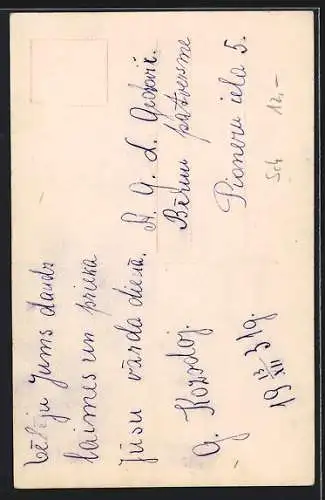 vēlēju Jums daudz
laimes un prieka
Jūsu vārda dienā.
G. Kozsdoj.
19 13/XII 31g.
A. G. L.
Bērnu patversme
Pioneru iela 5.
12,-